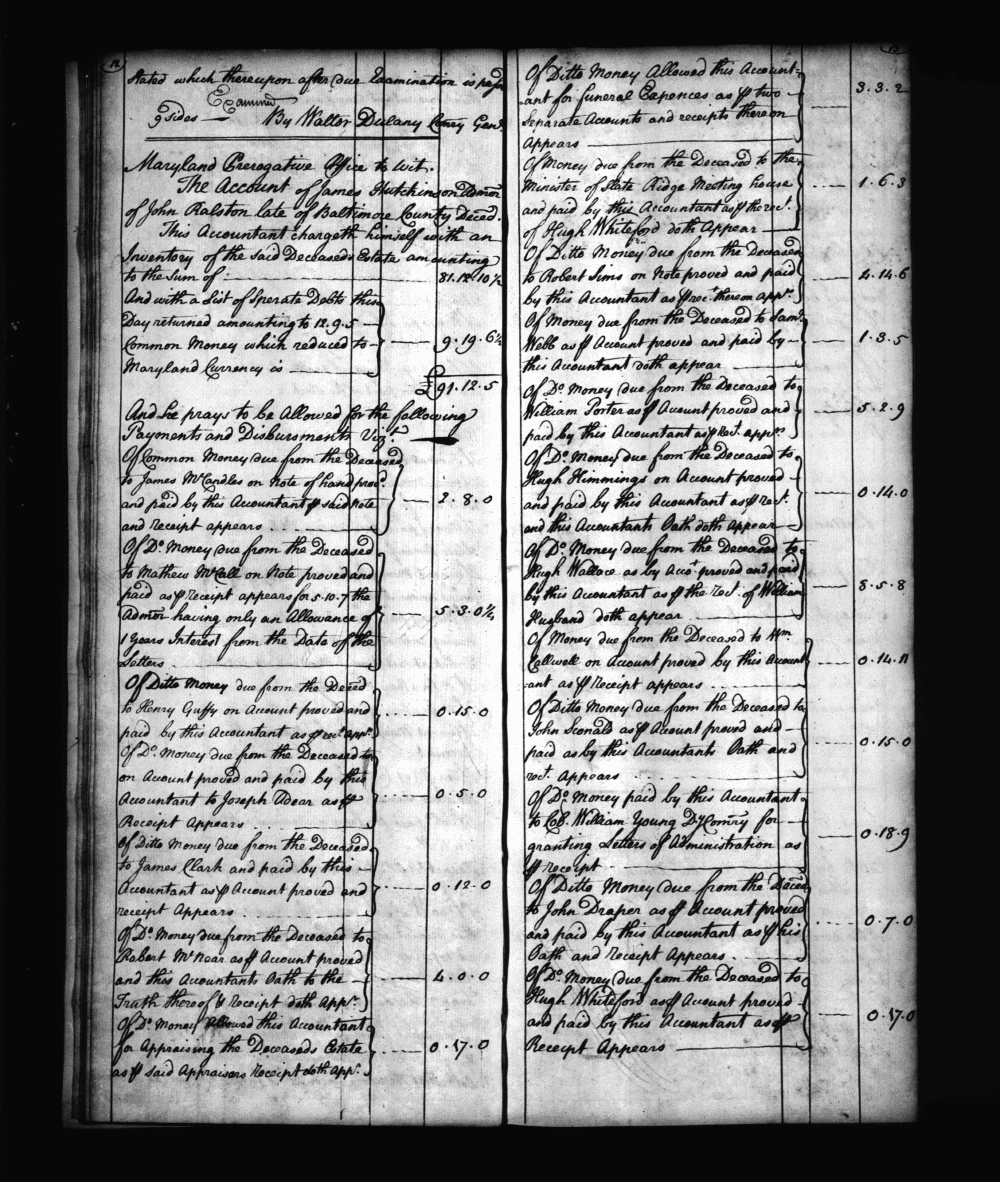 12
Stated which thereupon after due Examination is pass
Examined
9 sides — By Walter Dulany Comry Genl.
Maryland Prerogative Office to wit.
The Account of James Hutchinson Admor
of John Ralston late of Baltimore County Deced.
This Accountant chargeth himself with an
Inventory of the said Deceaseds Estate amounting
to the Sum of 81.12.10½
And with a List of Sperate Debts this
Day returned amounting to 12.9.5
Common Money which reduced to 9.19.6½
Maryland Currency is
£91.12.5
And he prays to be Allowed for the following
Payments and Disbursments Vizt.
Of Common Money due from the Deceased
to James McCandles on Note of hand prov'd
and paid by this Accountant ⅌ said Note 2.8.0
and receipt appears
Of Do. Money due from the Deceased
to Mathew McCall on Note proved and
paid as ⅌ receipt appears for 5.10.7 the
Admor having only an Allowance of 5.3.0½
1 Years Interest from the Date of the
Letters
Of Ditto Money due from the Deced
to Henry Guffy on Acount proved and 0.15.0
paid by this Accountant as ⅌ rect. appr.
Of Do. Money due from the Deceased to
on Account proved and paid by this
Accountant to Joseph Adear as ⅌ 0.5.0
Receipt Appears
Of Ditto Money due from the Deceased
to James Clark and paid by this
Accountant as ⅌ Account proved and 0.12.0
receipt Appears
Of Do. Money due from the Deceased to
Robert McNear as ⅌ Account proved
and this Accountants Oath to the 4.0.0
Truth thereof ⅌ Receipt doth Appr.
Of Do. Money Allowed this Accountant
for Appraising the Deceaseds Estate 0.17.0
as ⅌ said Appraisers Receipt doth appr.
12
Of Ditto Money Allowed this Account-
ant for Funeral Expences as ⅌ two 3.3.2
Separate Accounts and receipts thereon
Appears
Of Money due from the Deceased to the
Minister of Slate Ridge Meeting house 1.6.3
and paid by this Accountant as ⅌ the rect.
of Hugh Whiteford doth Appear
Of Ditto Money due from the Deceased
to Robert Sims on Note proved and paid 4.14.6
by this Accountant as ⅌ rect. thereon appr.
Of Money due from the Deceased to Saml.
Webb as ⅌ Account proved and paid by 1.3.5
this Accountant doth appear
Of Do. Money due from the Deceased to
William Porter as ⅌ Acount proved and 5.2.9
paid by this Accountant as ⅌ Rect. apprs.
Of Do. Money due from the Deceased to
Hugh Himmings on Account proved
and paid by this Accountant as ⅌ rect. 0.14.0
and this Accountants Oath doth Appear
Of Do. Money due from the Deceased to
Hugh Wallace as by Acct. proved and paid
by this Accountant as ⅌ the Rect. of William 3.5.8
Husband doth appear
Of Money due from the Deceased to Wm.
Callwell on Account proved by this Account 0.14.11
ant as ⅌ Receipt appears
Of Ditto Money due from the Deceased to
John Sconald as ⅌ Account proved and
paid as by this Accountants Oath and 0.15.0
rect. Appears
Of Do. Money paid by this Accountant
to Col. William Young Dy. Comry for
granting Letters of Administration as 0.18.9
⅌ receipt
Of Ditto Money due from the Deced
to John Draper as ⅌ Account proved
and paid by this Accountant as ⅌ his 0.7.0
Oath and Receipt Appears
Of Do. Money due from the Deceased to
Hugh Whiteford as ⅌ Acount proved
and paid by this Accountant as ⅌ 0.17.0
Receipt Appears